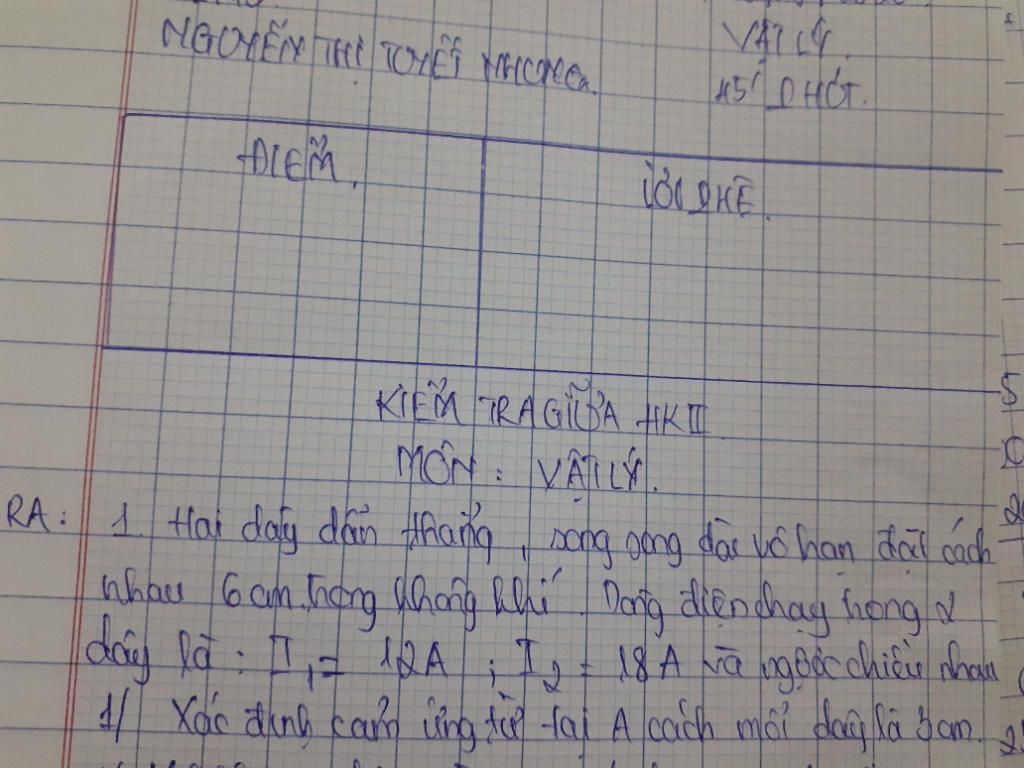 NGUYỄN THỊ TUYẾT NHUNG.
VẬT LÝ.
45' PHÚT.
ĐIỂM.
LỜI PHÊ.
KIỂM TRA GIỮA HKII
MÔN: VẬT LÝ.
RA: 1. Hai dây dẫn thẳng, song song dài vô hạn đặt cách
nhau 6cm trong không khí. Dòng điện chạy trong 2
dây là: I₁ = 12A; I₂ = 18A và ngược chiều nhau
1/ Xác định cảm ứng từ tại A cách mỗi dây là 3cm.